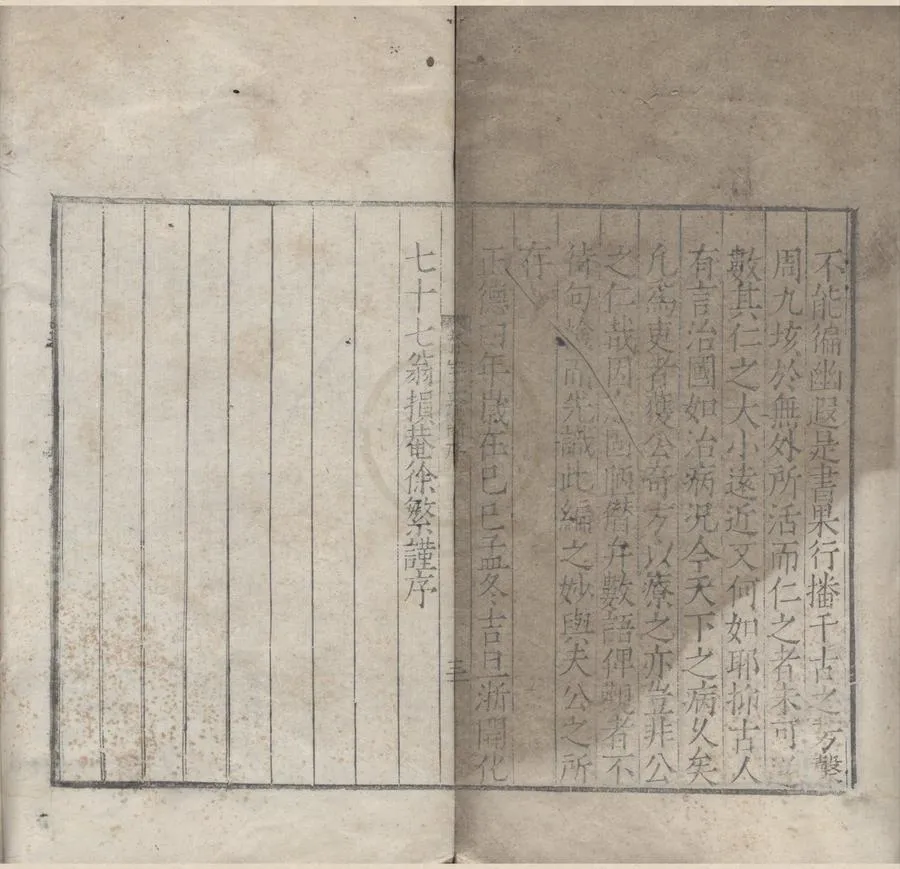 不能徧幽遐是書果行播千古之芳馨
周九垓於無外所活而仁之者未可
數其仁之大小遠近又何如耶抑古人
有言治國如治病況今天下之病久矣
凡為吏者獲公奇方以療之亦豈非公
之仁哉因忘固陋僭弁數語俾觀者不
待句檢而先識此編之妙與夫公之所
存
正德四年歲在己巳孟冬吉旦浙開化
七十七翁損菴徐繁謹序
三